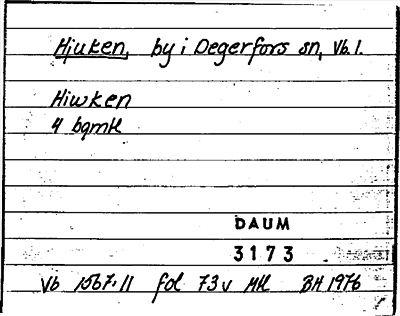 Hjuken, by i Degerfors sn, Vb. l.
Hiwken
4 bgmtl
DAUM
3173
Vb 1567:11 fol 73v Mtl BH 1976